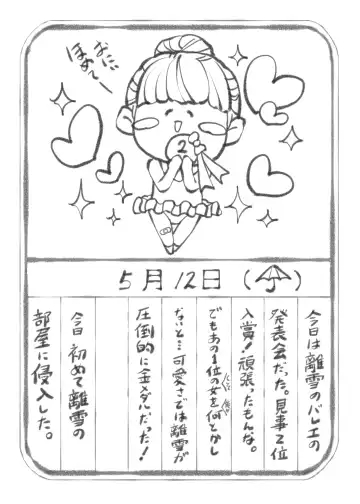 おにぃ
ほめてー
2
5月12日(☂)
今日は離雪のバレエの
発表会だった。見事2位
入賞!頑張ったもんな。
でもあの1位の女を何とかし
ないと…可愛さでは離雪が
圧倒的に金メダルだった!
今日 初めて離雪の
部屋に侵入した。